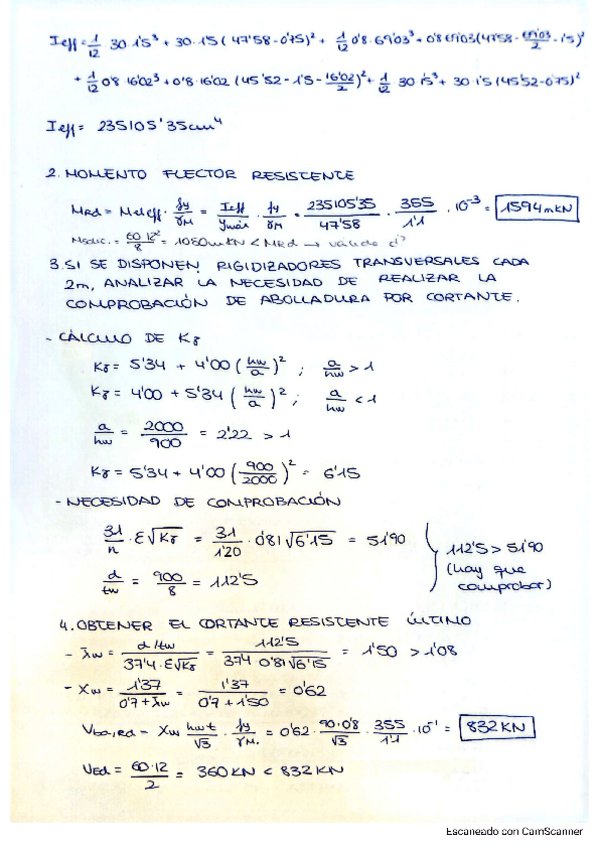 Ieff = 1/12 30·1'5³ + 30·1'5 (47'58 - 0'75)² + 1/12 0'8·69'03³ + 0'8·69'03 (47'58 - 69'03/2 - 1'5)²
+ 1/12 0'8·16'02³ + 0'8·16'02 (45'52 - 1'5 - 16'02/2)² + 1/12 30·1'5³ + 30·1'5 (45'52 - 0'75)²
Ieff = 235105'35 cm⁴
2. MOMENTO FLECTOR RESISTENTE
MRd = Wel,eff · fy/γM = Ieff/ymáx · fy/γM = 235105'35/47'58 · 355/1'1 · 10⁻³ = 1594 mKN
= 60·12²/8 = 1080 mKN < MRd →
3. SI SE DISPONEN RIGIDIZADORES TRANSVERSALES CADA
2m, ANALIZAR LA NECESIDAD DE REALIZAR LA
COMPROBACIÓN DE ABOLLADURA POR CORTANTE.
- CÁLCULO DE Kγ
Kγ = 5'34 + 4'00 (hw/a)² ; a/hw > 1
Kγ = 4'00 + 5'34 (hw/a)² ; a/hw < 1
a/hw = 2000/900 = 2'22 > 1
Kγ = 5'34 + 4'00 (900/2000)² = 6'15
- NECESIDAD DE COMPROBACIÓN
31/n · ε√Kγ = 31/1'20 · 0'81√6'15 = 51'90
d/tw = 900/8 = 112'5
112'5 > 51'90
(hay que
comprobar)
4. OBTENER EL CORTANTE RESISTENTE ÚLTIMO
- λ̄w = d/tw / 37'4·ε√Kγ = 112'5 / 37'4·0'81√6'15 = 1'50 > 1'08
- χw = 1'37 / 0'7 + λ̄w = 1'37 / 0'7 + 1'50 = 0'62
Vba,Rd = χw hw·t/√3 · fy/γM = 0'62 · 90·0'8/√3 · 355/1'1 · 10⁻¹ = 832 KN
VEd = 60·12/2 = 360 KN < 832 KN
Escaneado con CamScanner